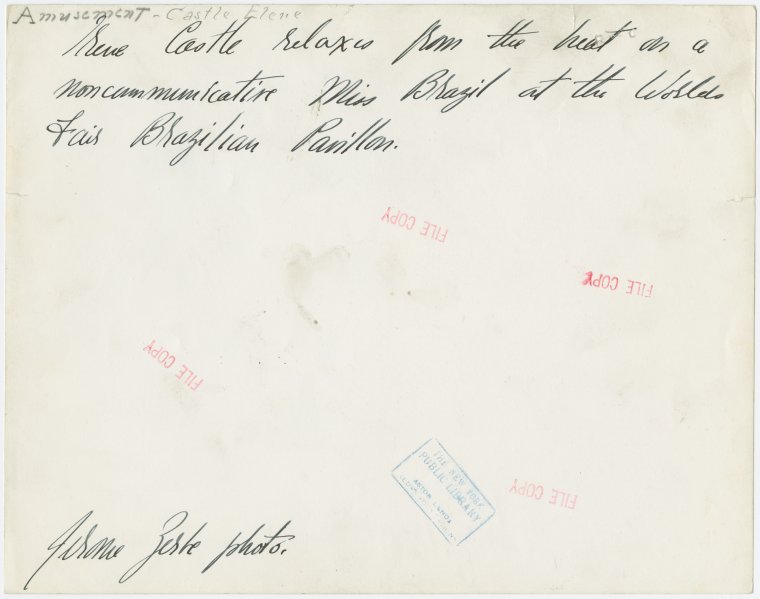 Amusement - Castle Elene
Irene Castle relaxes from the heat on a
noncummunicative Miss Brazil at the Worlds
Fair Brazilian Pavillon.
FILE COPY
FILE COPY
FILE COPY
THE NEW YORK
PUBLIC LIBRARY
ASTOR, LENOX
FILE COPY
Jerome Zerbe photo.